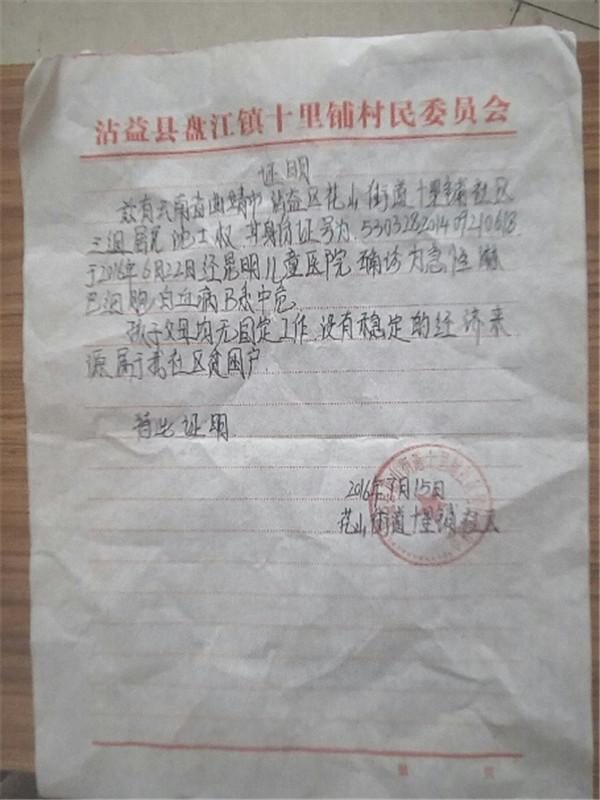 沾益县盘江镇十里铺村民委员会
证明
兹有云南省曲靖市沾益区花山街道十里铺社区
三组居民池士权 其身份证号为 530328201409210618
于2016年6月22日经昆明儿童医院 确诊为急性淋
巴细胞白血病B系中危
孩子父母均无固定工作 没有稳定的经济来
源 属于我社区贫困户
特此证明
2016年 月15日
花山街道十里铺社区
页